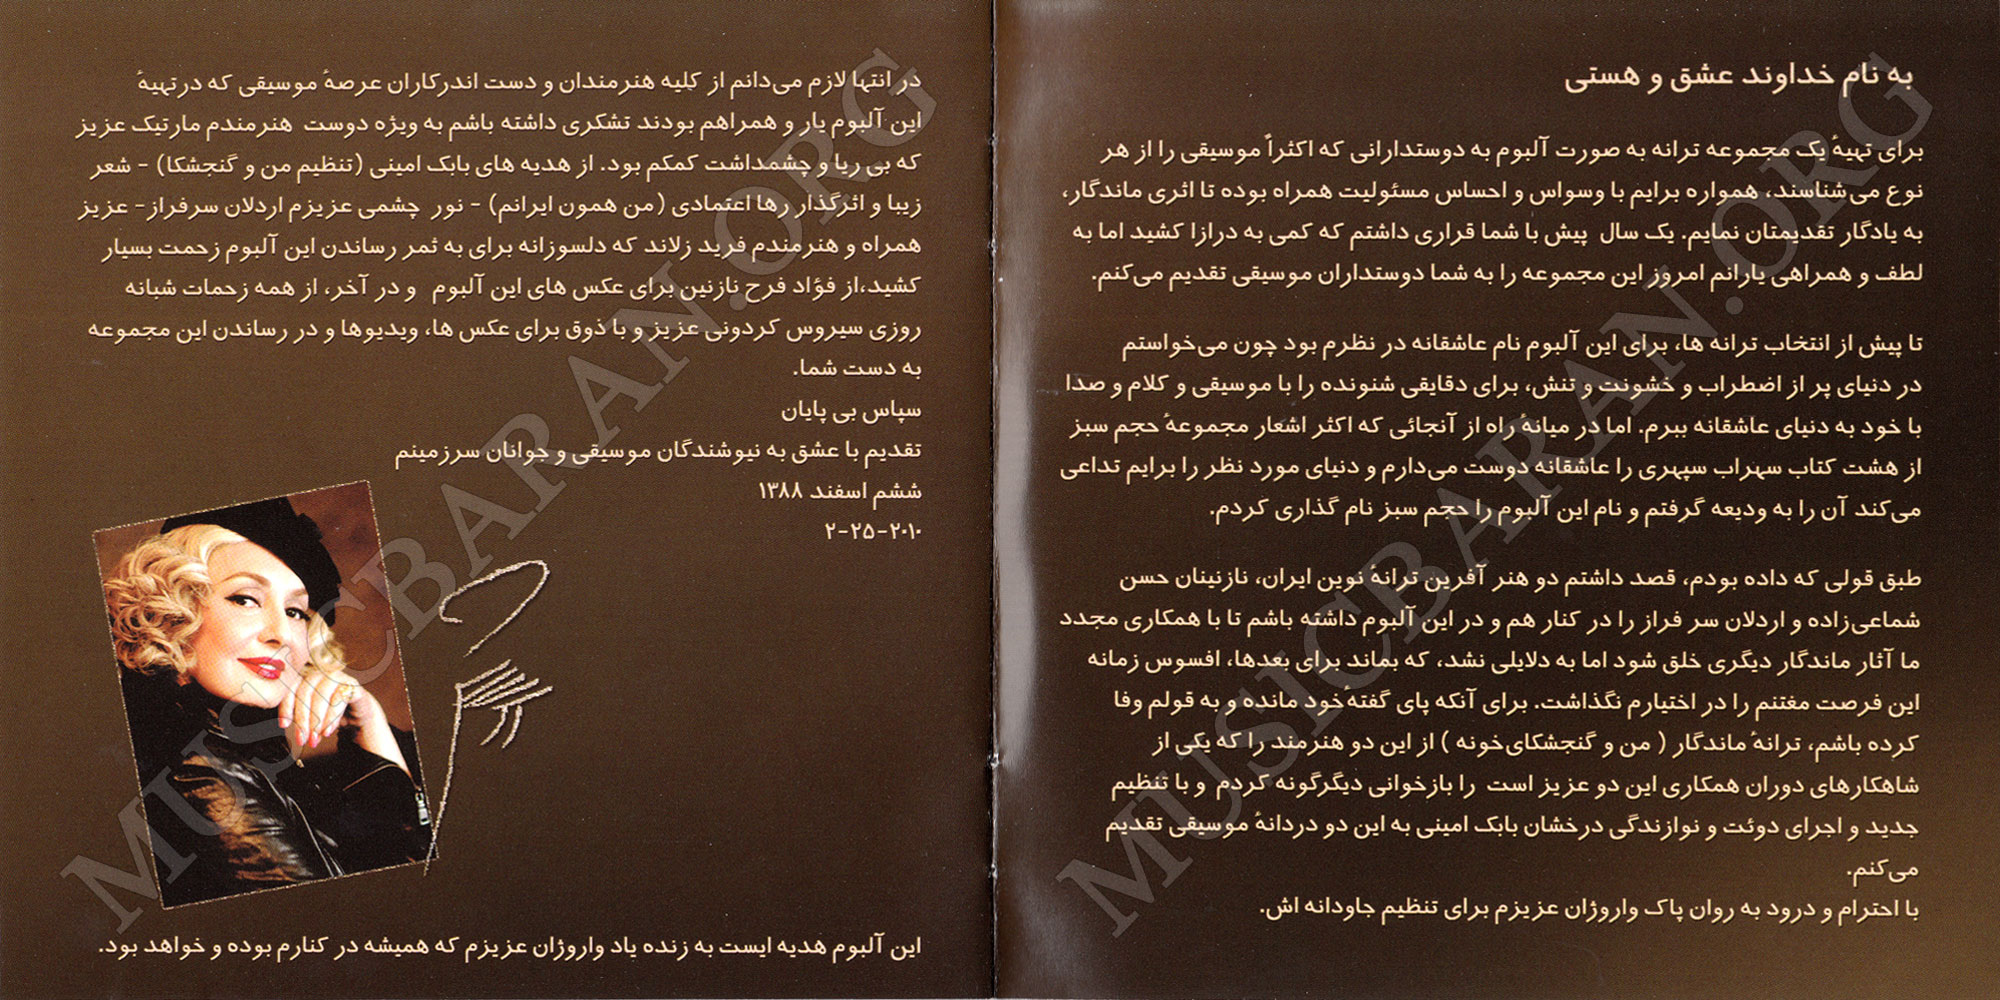 به نام خداوند عشق و هستی
برای تهیهٔ یک مجموعه ترانه به صورت آلبوم به دوستدارانی که اکثراً موسیقی را از هر
نوع می‌شناسند، همواره برایم با وسواس و احساس مسئولیت همراه بوده تا اثری ماندگار،
به یادگار تقدیمتان نمایم. یک سال پیش با شما قراری داشتم که کمی به درازا کشید اما به
لطف و همراهی یارانم امروز این مجموعه را به شما دوستداران موسیقی تقدیم می‌کنم.
تا پیش از انتخاب ترانه ها، برای این آلبوم نام عاشقانه در نظرم بود چون می‌خواستم
در دنیای پر از اضطراب و خشونت و تنش، برای دقایقی شنونده را با موسیقی و کلام و صدا
با خود به دنیای عاشقانه ببرم. اما در میانهٔ راه از آنجائی که اکثر اشعار مجموعهٔ حجم سبز
از هشت کتاب سهراب سپهری را عاشقانه دوست می‌دارم و دنیای مورد نظر را برایم تداعی
می‌کند آن را به ودیعه گرفتم و نام این آلبوم را حجم سبز نام گذاری کردم.
طبق قولی که داده بودم، قصد داشتم دو هنر آفرین ترانهٔ نوین ایران، نازنینان حسن
شماعی‌زاده و اردلان سر فراز را در کنار هم و در این آلبوم داشته باشم تا با همکاری مجدد
ما آثار ماندگار دیگری خلق شود اما به دلایلی نشد، که بماند برای بعدها، افسوس زمانه
این فرصت مغتنم را در اختیارم نگذاشت. برای آنکه پای گفته‌خود مانده و به قولم وفا
کرده باشم، ترانهٔ ماندگار ( من و گنجشکای‌خونه ) از این دو هنرمند را که یکی از
شاهکارهای دوران همکاری این دو عزیز است را بازخوانی دیگرگونه کردم و با تنظیم
جدید و اجرای دوئت و نوازندگی درخشان بابک امینی به این دو دردانهٔ موسیقی تقدیم
می‌کنم.
با احترام و درود به روان پاک واروژان عزیزم برای تنظیم جاودانه اش.
در انتها لازم می‌دانم از کلیه هنرمندان و دست اندرکاران عرصهٔ موسیقی که درتهیهٔ
این آلبوم یار و همراهم بودند تشکری داشته باشم به ویژه دوست هنرمندم مارتیک عزیز
که بی ریا و چشمداشت کمکم بود. از هدیه های بابک امینی (تنظیم من و گنجشکا) - شعر
زیبا و اثرگذار رها اعتمادی (من همون ایرانم) - نور چشمی عزیزم اردلان سرفراز- عزیز
همراه و هنرمندم فرید زلاند که دلسوزانه برای به ثمر رساندن این آلبوم زحمت بسیار
کشید،از فؤاد فرح نازنین برای عکس های این آلبوم و در آخر، از همه زحمات شبانه
روزی سیروس کردونی عزیز و با ذوق برای عکس ها، ویدیوها و در رساندن این مجموعه
به دست شما.
سپاس بی پایان
تقدیم با عشق به نیوشندگان موسیقی و جوانان سرزمینم
ششم اسفند ۱۳۸۸
۲-۲۵-۲۰۱۰
این آلبوم هدیه ایست به زنده یاد واروژان عزیزم که همیشه در کنارم بوده و خواهد بود.
MUSICBARAN.ORG
MUSICBARAN.ORG